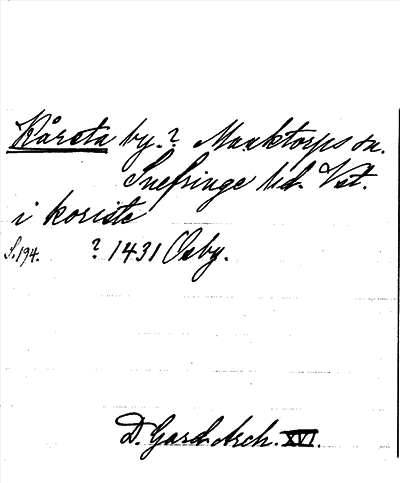 Kårsta by.? Maaktorps sn.
Snefringe hd. Vst.
i koriste
S. 194. ? 1431 Osby.
D. Gard. Arch. XVI.